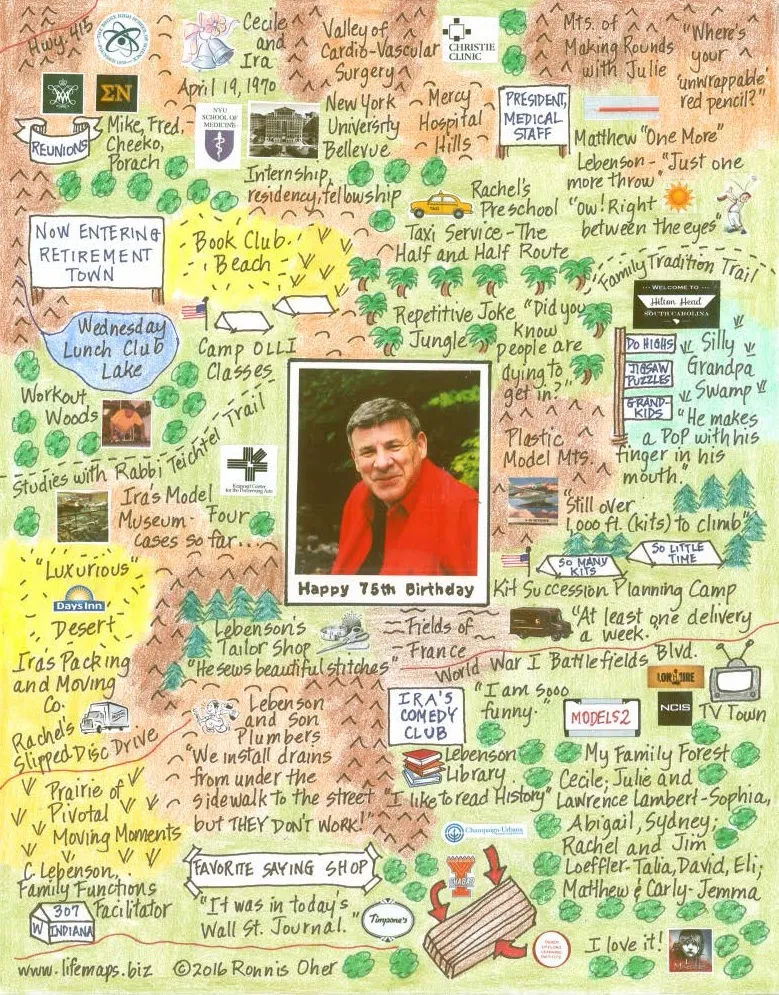 Hwy. 415
Cecile
and
Ira
April 19, 1970
Valley of
Cardio-Vascular
Surgery
CHRISTIE
CLINIC
Mts. of
Making Rounds
with Julie
"Where's
your
'unwrappable'
red pencil?"
ΣN
REUNIONS
Mike, Fred,
Cheeko,
Porach
NYU
SCHOOL OF
MEDICINE
New York
University
Bellevue
Internship,
residency, fellowship
Mercy
Hospital
Hills
PRESIDENT,
MEDICAL
STAFF
Matthew "One More"
Lebenson - "Just one
more throw."
"Ow! Right
between the eyes"
TAXI
Rachel's
Preschool
Taxi Service - The
Half and Half Route
NOW ENTERING
RETIREMENT
TOWN
Book Club
Beach
Family Tradition Trail
WELCOME TO
Hilton Head
SOUTH CAROLINA
Wednesday
Lunch Club
Lake
Camp OLLI
Classes
Repetitive Joke
Jungle
"Did you
know
people are
dying to
get in?"
DO HIGHS
JIGSAW
PUZZLES
GRAND-
KIDS
Silly
Grandpa
Swamp
"He makes
a POP with his
finger in his
mouth"
Workout
Woods
Studies with Rabbi Teichtel Trail
Krannert Center
for the Performing Arts
Ira's Model
Museum - Four
cases so far...
Plastic
Model Mts.
"Still over
1,000 ft. (kits) to climb"
SO MANY
KITS
SO LITTLE
TIME
Kit Succession Planning Camp
Happy 75th Birthday
"Luxurious"
Days Inn
Desert
Lebenson's
Tailor Shop
"He sews beautiful stitches"
Fields of
France
"At least one delivery
a week."
World War I Battlefields Blvd.
Ira's Packing
and Moving
Co.
Rachel's
Slipped Disc Drive
Lebenson
and Son
Plumbers
"We install drains
from under the
sidewalk to the street
but THEY DON'T WORK!"
IRA'S
COMEDY
CLUB
"I am sooo
funny."
MODELS2
LONGMIRE
NCIS
TV Town
Lebenson
Library
"I like to read History"
My Family Forest
Cecile; Julie and
Lawrence Lambert-Sophia,
Abigail, Sydney;
Rachel and Jim
Loeffler-Talia, David, Eli;
Matthew & Carly-Jemma
Prairie of
Pivotal
Moving Moments
C. Lebenson,
Family Functions
Facilitator
307
W INDIANA
FAVORITE SAYING SHOP
"It was in today's
Wall St. Journal."
Timpone's
Champaign-Urbana
CHABAD
I love it!
www.lifemaps.biz ©2016 Ronnis Oher